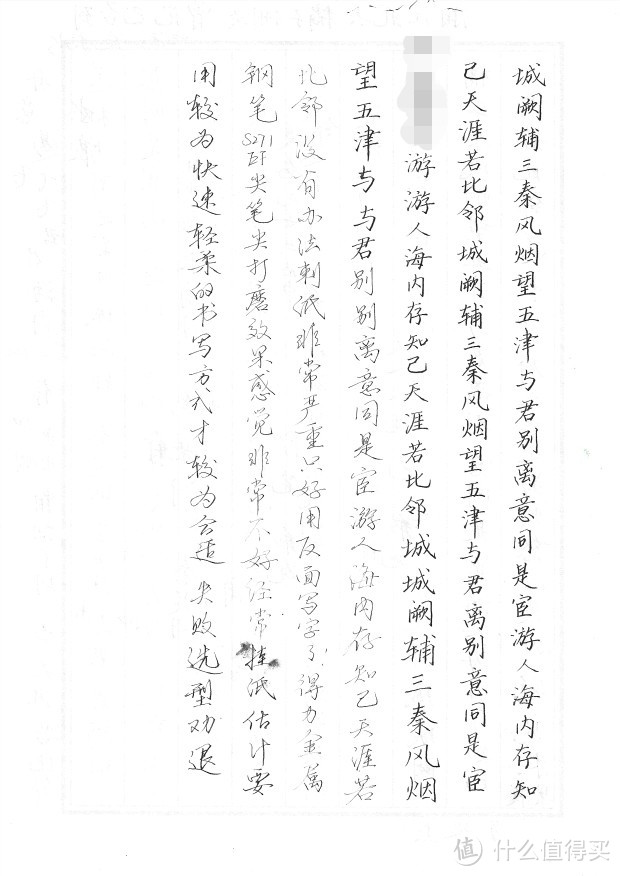 城阙辅三秦风烟望五津与君别离意同是宦游人海内存知
己天涯若比邻城阙辅三秦风烟望五津与君离别意同是宦
游游人海内存知己天涯若比邻城城阙辅三秦风烟
望五津与与君别别离意同是宦游人海内存知己天涯若
比邻没有办法刺纸非常严重只好用反面写字了得力金属
钢笔S271EF尖笔尖打磨效果感觉非常不好经常挂纸估计要
用较为快速轻柔的书写方式才较为合适失败选型劝退
值 什么值得买